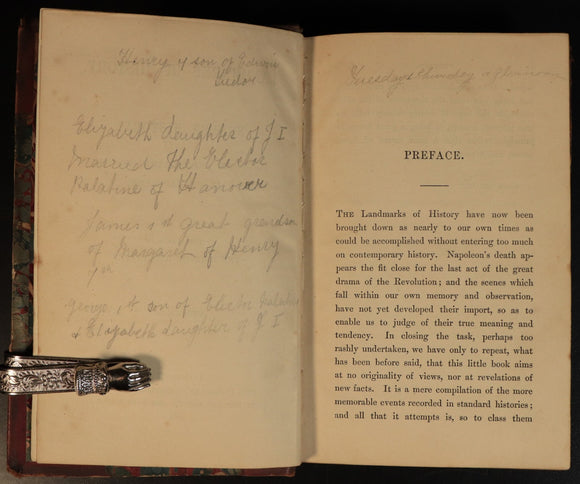 Henry 7 son of Edwin
Tudor
Elizabeth daughter of J I
Married The Elector
Palatine of Hanover
James 1st great grandson
of Margaret of Henry
7th
George 1st son of Elector Palatine
& Elizabeth daughter of J I
Tuesdays Thursday afternoon
PREFACE.
THE Landmarks of History have now been
brought down as nearly to our own times as
could be accomplished without entering too much
on contemporary history. Napoleon's death ap-
pears the fit close for the last act of the great
drama of the Revolution; and the scenes which
fall within our own memory and observation,
have not yet developed their import, so as to
enable us to judge of their true meaning and
tendency. In closing the task, perhaps too
rashly undertaken, we have only to repeat, what
has been before said, that this little book aims
at no originality of views, nor at revelations of
new facts. It is a mere compilation of the more
memorable events recorded in standard histories;
and all that it attempts is, so to class them